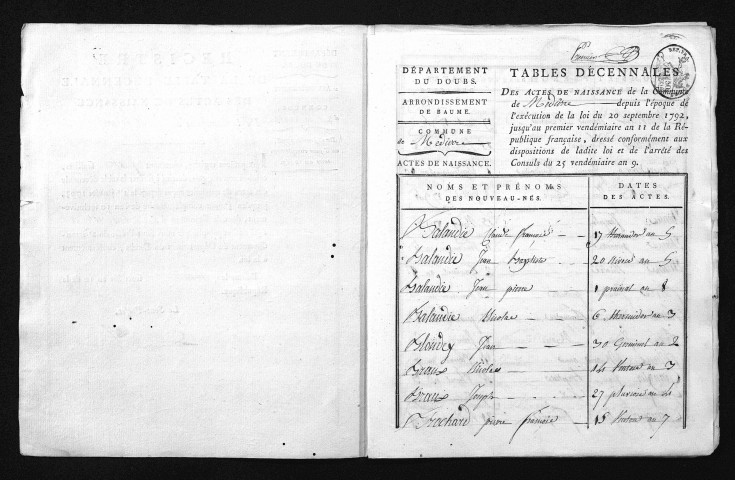 DÉPARTEMENT
DU DOUBS.
ARRONDISSEMENT
DE BAUME.
COMMUNE
de Mediere
ACTES DE NAISSANCE.
TABLES DÉCENNALES
DES ACTES DE NAISSANCE de la Commune
de Mediere depuis l'époque de
l'exécution de la loi du 20 septembre 1792,
jusqu'au premier vendémiaire an 11 de la Ré-
publique française, dressé conformément aux
dispositions de ladite loi et de l'arrêté des
Consuls du 25 vendémiaire an 9.
NOMS ET PRÉNOMS
DES NOUVEAU-NÉS.
DATES
DES ACTES.
Balandie Claude François 17 thermidor an 5
Balandie Jean Baptiste 20 nivose an 5
Balandie Jean pierre 1 prairial an 8
Balandie Nicolas 6 thermidor an 3
Blondey Jean 30 Germinal an 2
Braux Nicolas 14 Ventose an 3
Braux Joseph 27 pluviose an
Brochard pierre françois 15 Ventose an 7